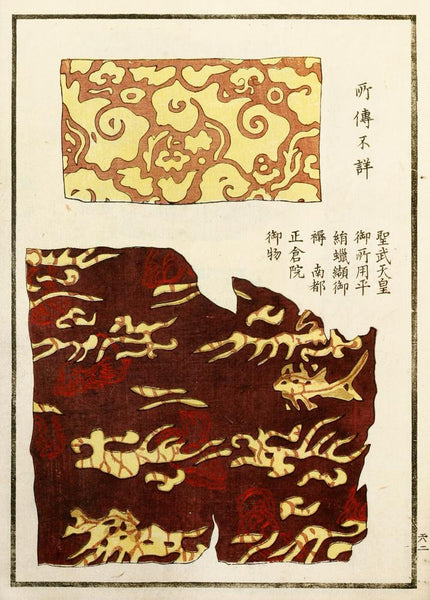 所傳不詳
聖武天皇
御所用平
絹蠟纈御
褥　南都
正倉院
御物
六二